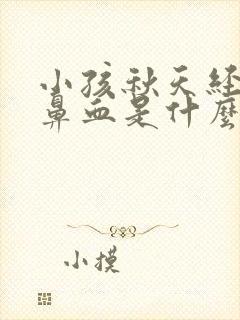 小孩秋天经
鼻血是什麼
小摸